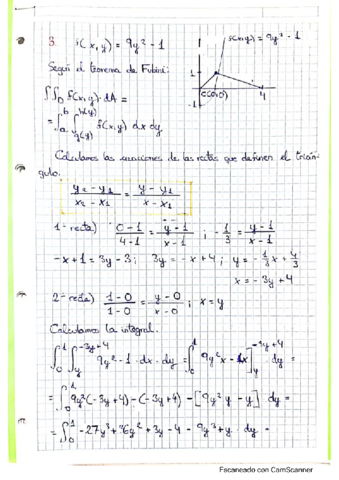 3. f(x,y) = 9y² - 1
f(x,y) = 9y² - 1
Según el teorema de Fubini:
∫∫_D f(x,y) · dA =
= ∫_a^b ∫_{g(y)}^{h(y)} f(x,y) dx dy
1
4
Calculamos las ecuaciones de las rectas que definen el trián-
gulo.
(y₂ - y₁)/(x₂ - x₁) = (y - y₁)/(x - x₁)
1ª recta) (0-1)/(4-1) = (y-1)/(x-1) ; -1/3 = (y-1)/(x-1)
-x+1 = 3y-3; 3y = -x+4; y = -1/3 x + 4/3
x = -3y+4
2ª recta) (1-0)/(1-0) = (y-0)/(x-0) ; x = y
Calculamos la integral.
∫_0^1 ∫_y^{-3y+4} 9y² - 1 · dx · dy = ∫_0^1 [9y²x - x]_y^{-3y+4} dy =
= ∫_0^1 9y²(-3y+4) - (-3y+4) - [9y² y - y] dy =
= ∫_0^1 -27y³ + 36y² + 3y - 4 - 9y³ + y · dy =
Escaneado con CamScanner